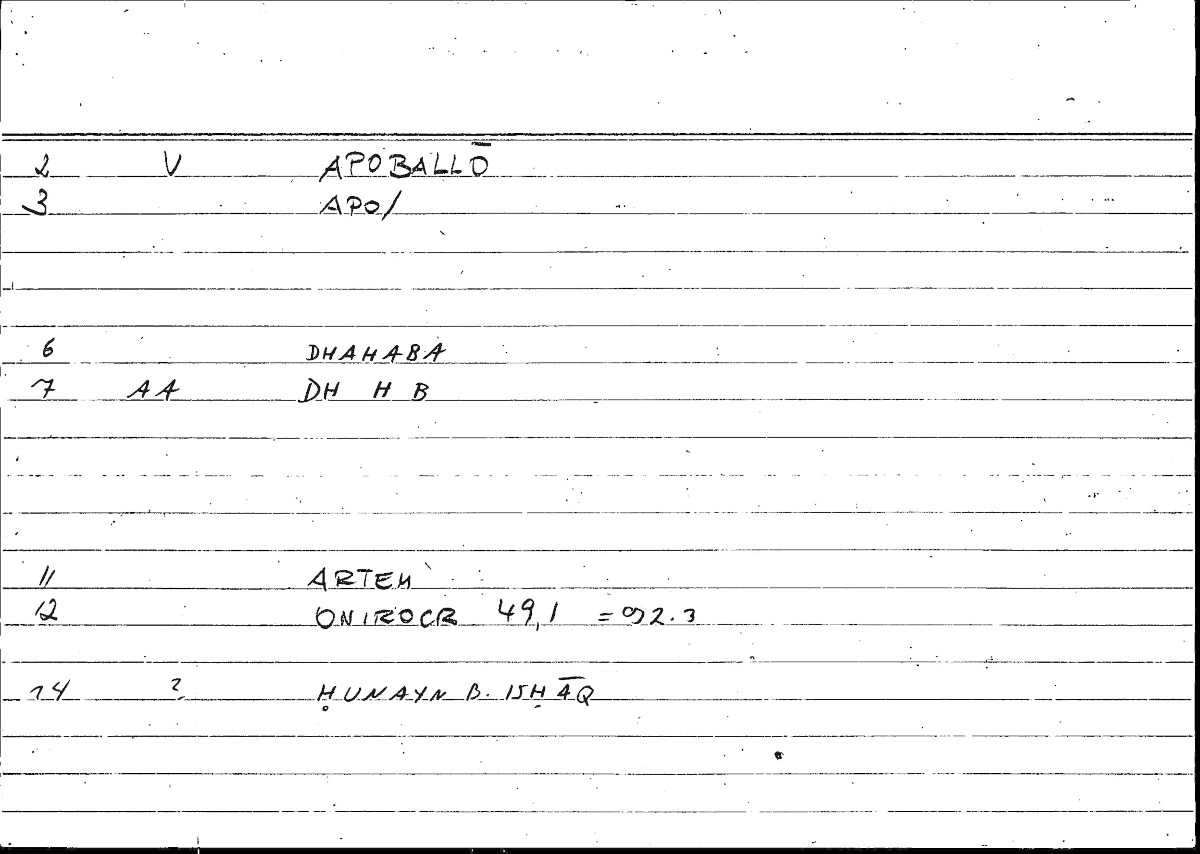 2 V APOBALLŌ
3 APO/
6 DHAHABA
7 AA DH H B
11 ARTEM
12 ONIROCR 49,1 = 92.3
14 ? ḤUNAYN B. ISḤĀQ